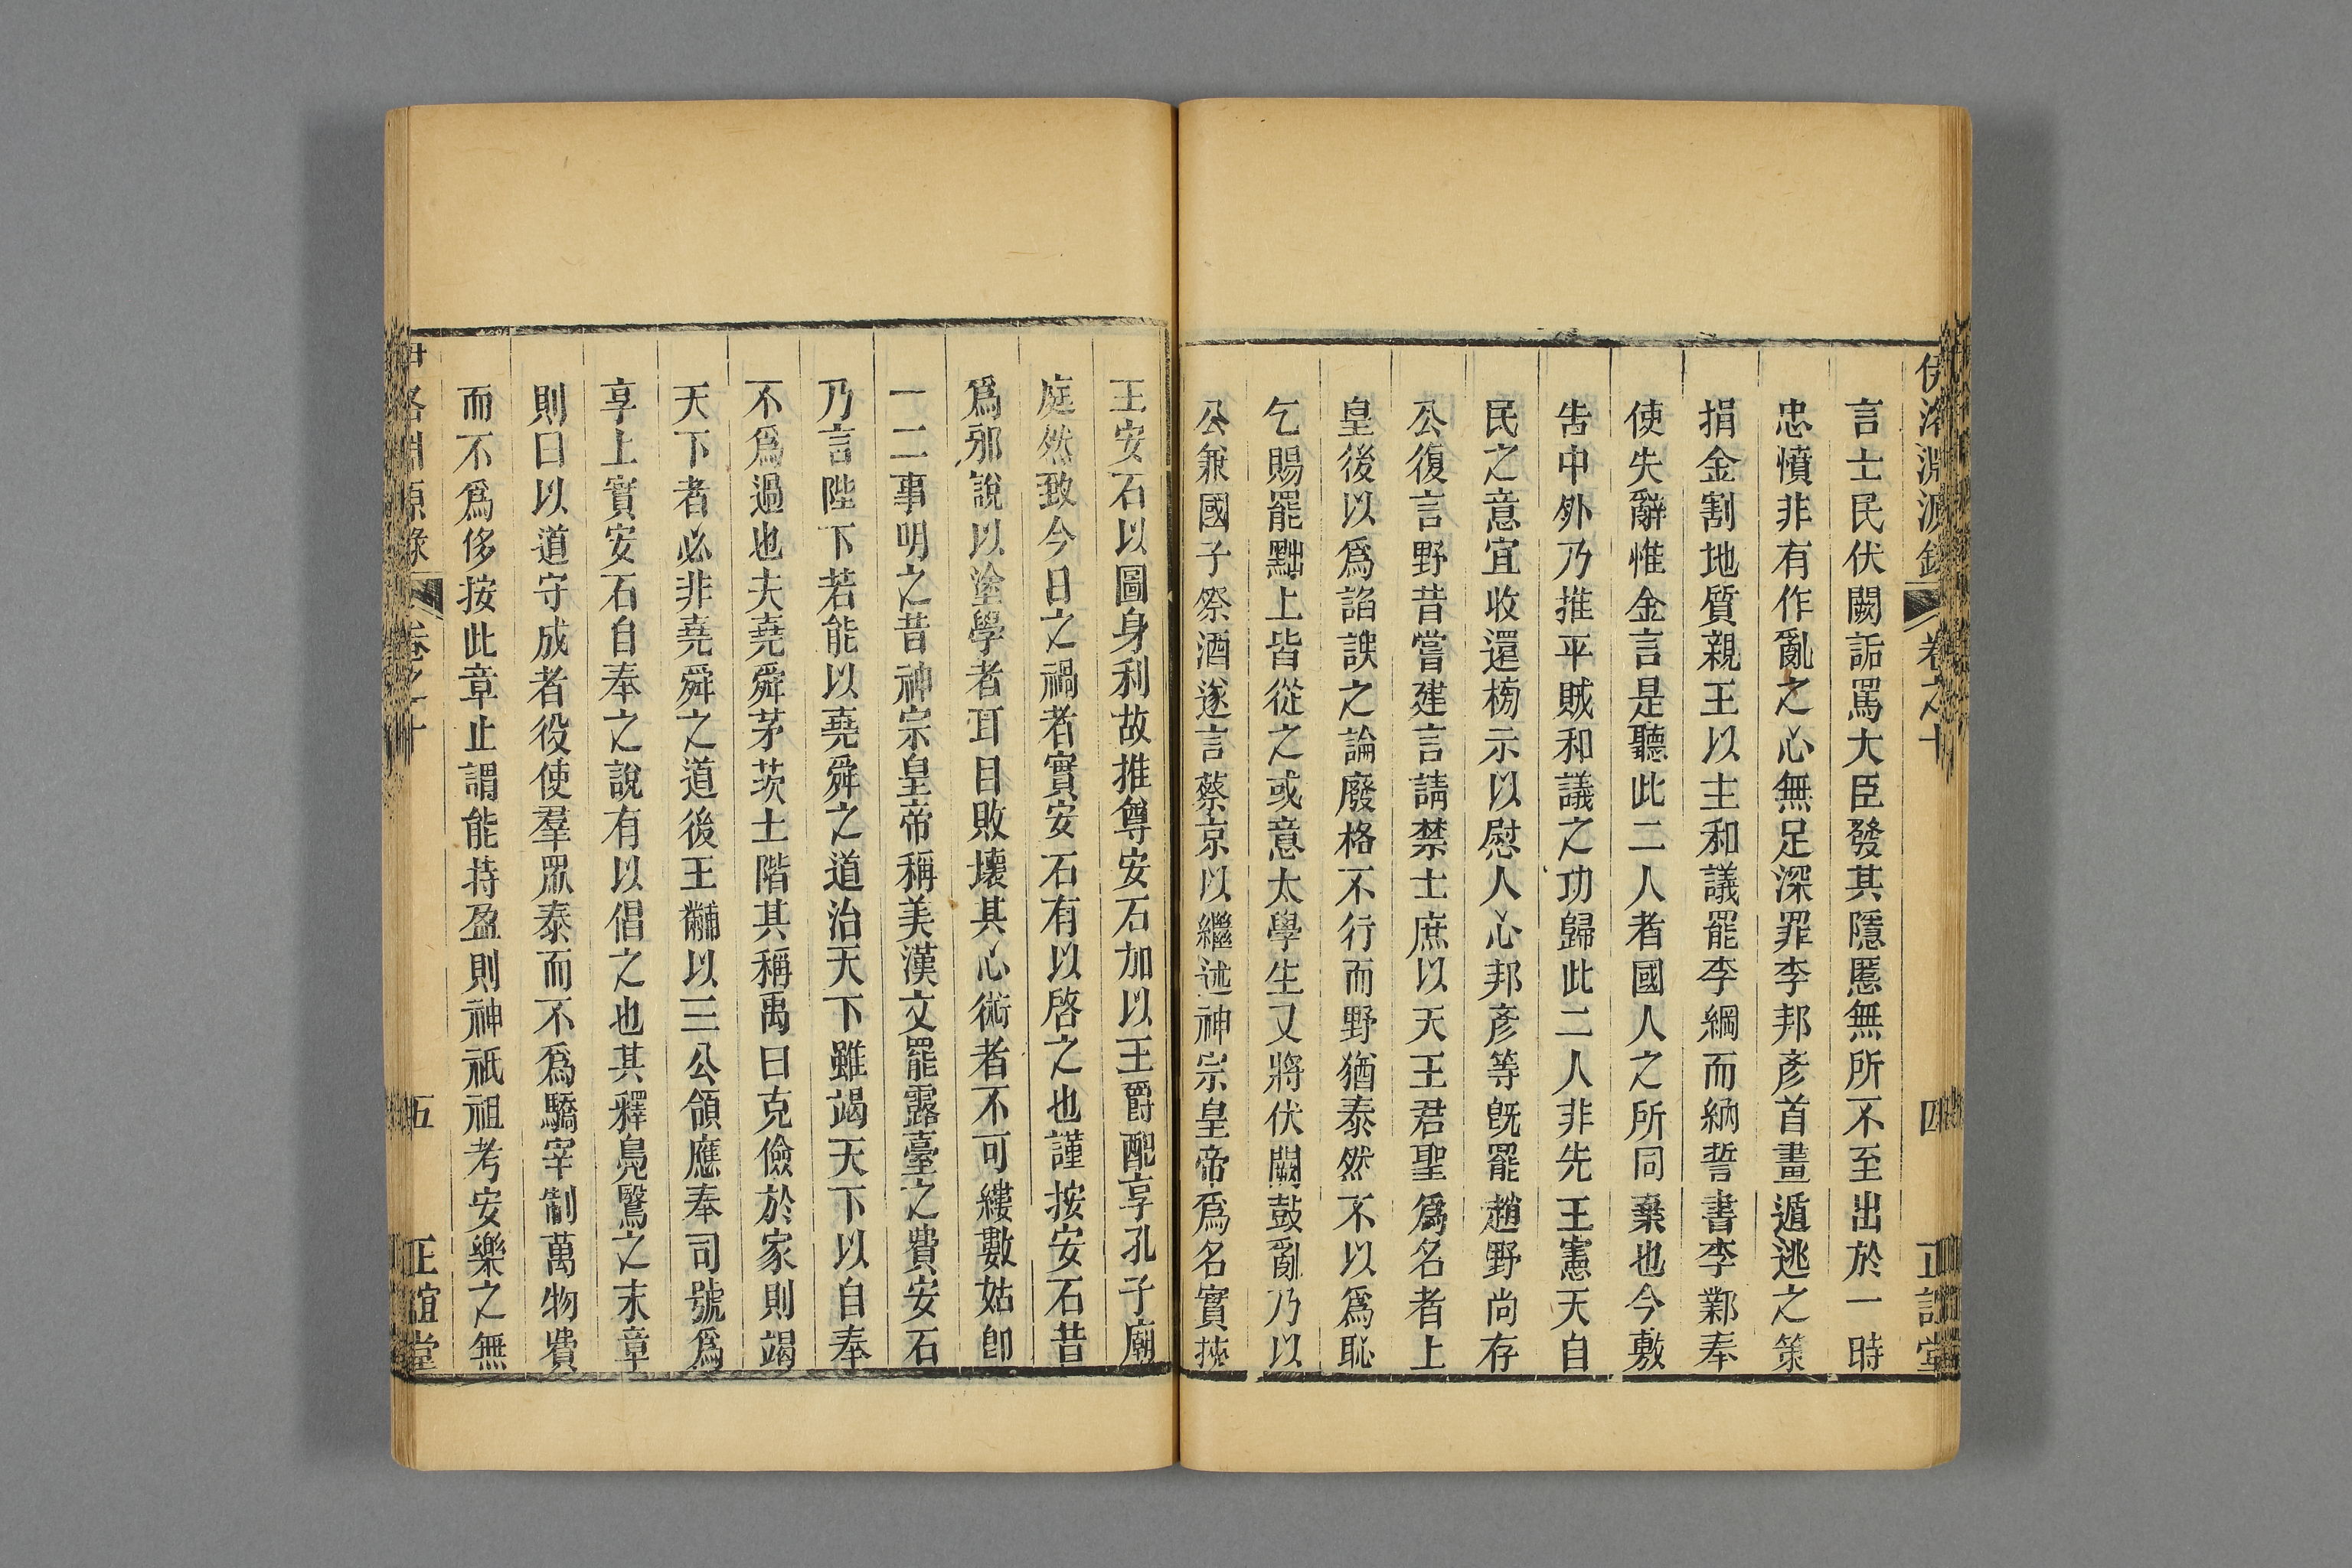 伊洛淵源錄 卷之十 四 正誼堂
言士民伏闕詬罵大臣發其隱慝無所不至出於一時
忠憤非有作亂之心無足深罪李邦彥首畫遁逃之策
捐金割地質親王以主和議罷李綱而納誓書李鄴奉
使失辭惟金言是聽此二人者國人之所同棄也今敷
告中外乃推平賊和議之功歸此二人非先王憲天自
民之意宜收還榜示以慰人心邦彥等旣罷趙野尚存
公復言野昔嘗建言請禁士庶以天王君聖爲名者上
皇後以爲諂諛之論廢格不行而野猶泰然不以爲恥
乞賜罷黜上皆從之或意太學生又將伏闕鼓亂乃以
公兼國子祭酒遂言蔡京以繼述神宗皇帝爲名實挾
王安石以圖身利故推尊安石加以王爵配享孔子廟
庭然致今日之禍者實安石有以啓之也謹按安石昔
爲邪說以塗學者耳目敗壞其心術者不可縷數姑卽
一二事明之昔神宗皇帝稱美漢文罷露臺之費安石
乃言陛下若能以堯舜之道治天下雖竭天下以自奉
不爲過也夫堯舜茅茨土階其稱禹曰克儉於家則竭
天下者必非堯舜之道後王黼以三公領應奉司號爲
享上實安石自奉之說有以倡之也其釋鳧鷖之末章
則曰以道守成者役使羣眾泰而不爲驕宰制萬物費
而不爲侈按此章止謂能持盈則神祇祖考安樂之無
伊洛淵源錄 卷之十 五 正誼堂